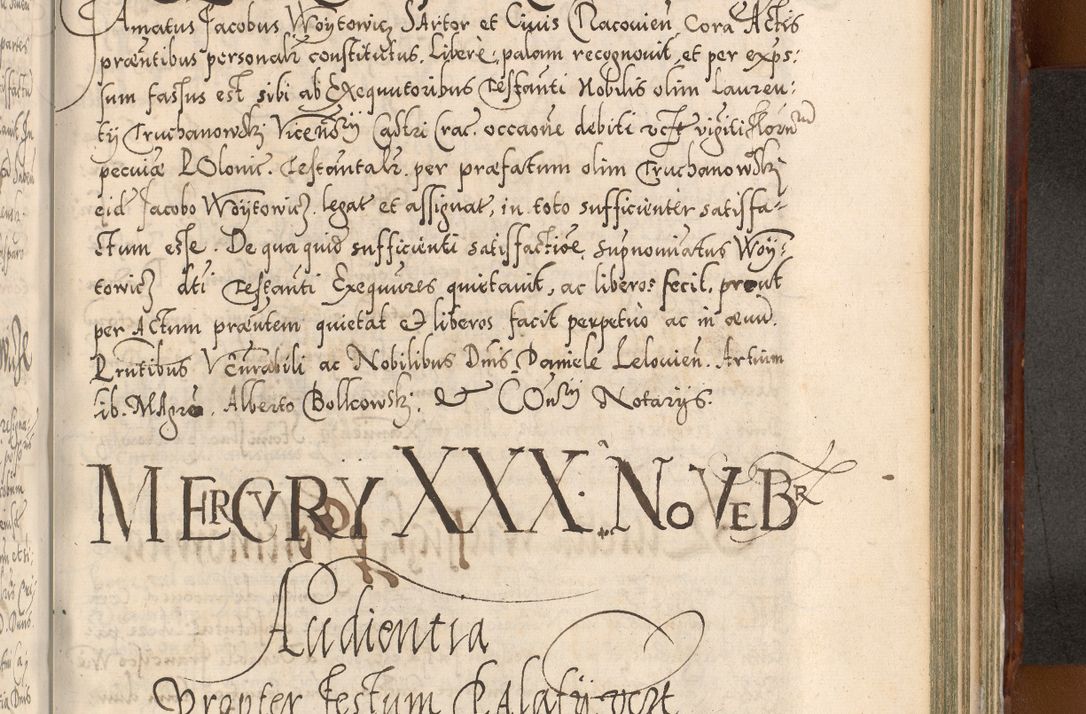 Famatus Jacobus Woytowicz Sartor et Civis Cracovien. Cora Actis
præntibus personalr constitutus. Libere, palam recognovit, et per exps:
sum fassus est sibi ab Exequutoribus Testanti Nobilis olim Lauren:
tij Truchanowskj Vicensrij Castri Crac. occaone debiti vigiti
pecuiæ POlonic. Testamtalr. per præfatum olim Truchanowskj
eid Jacobo Woytowicz. legat et assignat, in toto sufficienter satisfa-
ctum esse. De qua quid sufficienti satisfactioe supnominatus Woy-
towicz dti Testanti Exequures quietavit, ac liberos fecit, prout
per Actum præntem quietat et liberos facit perpetuo ac in ævu.
Prntibus Venrabili ac Nobilibus Dnis. Daniele Lelovien. Artium
lib. MAgro. Alberto Bolkowskj. & COnsrij Notarijs.
MERCVRY XXX. NoVEBr
Audientia
Propter Festum CAlatij post